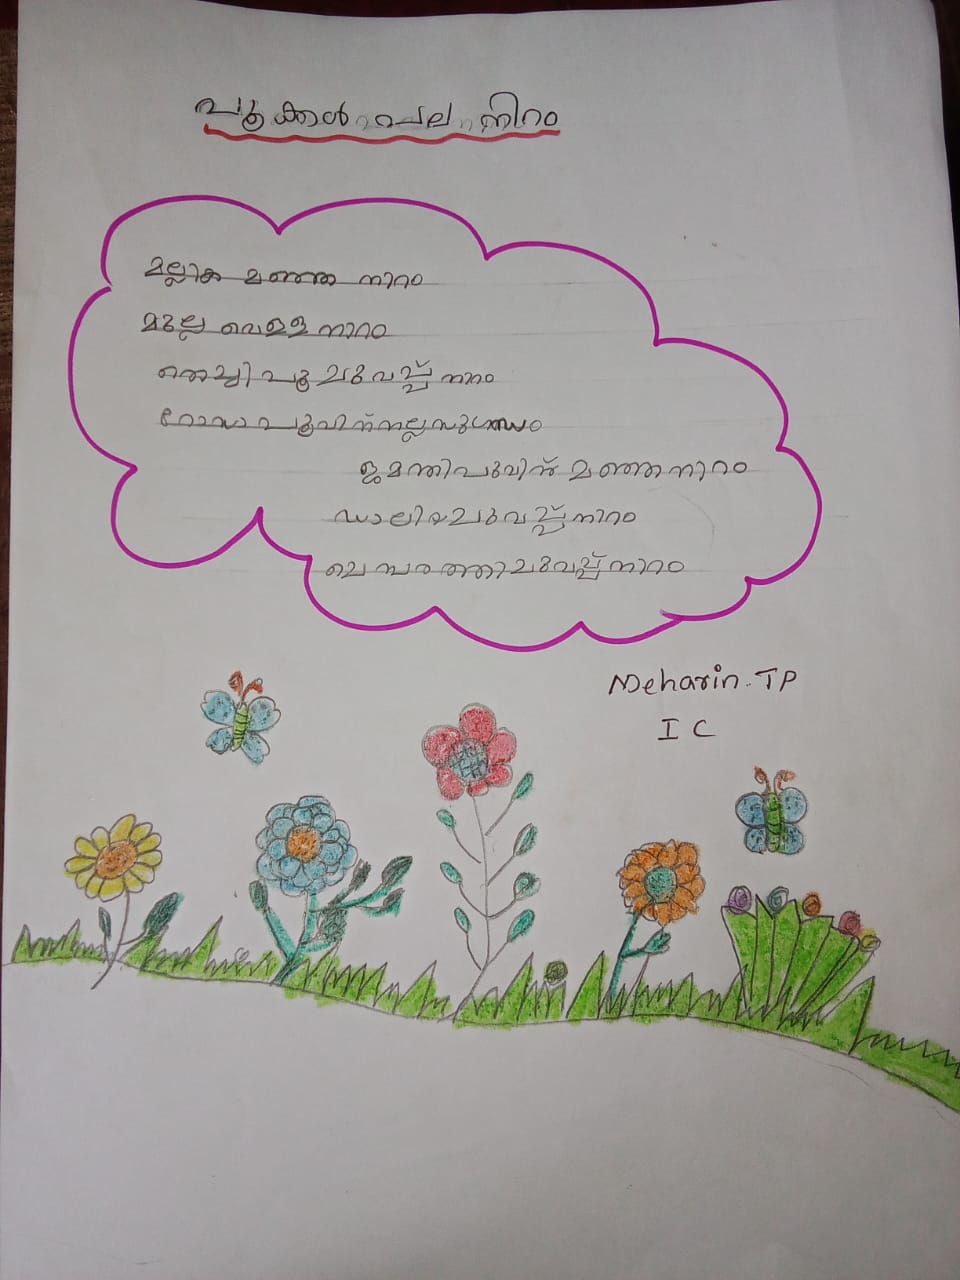 പൂക്കൾ പല നിറം
മല്ലിക മഞ്ഞ നിറം
മുല്ല വെള്ള നിറം
തെച്ചി പൂ ചുവപ്പ് നിറം
റോസാ പൂവിന് നല്ല സുഗന്ധം
ജമന്തി പുവിന് മഞ്ഞ നിറം
ഡാലിയ ചുവപ്പ് നിറം
ചെമ്പരത്തി ചുവപ്പ് നിറം
Meharin. TP
I C